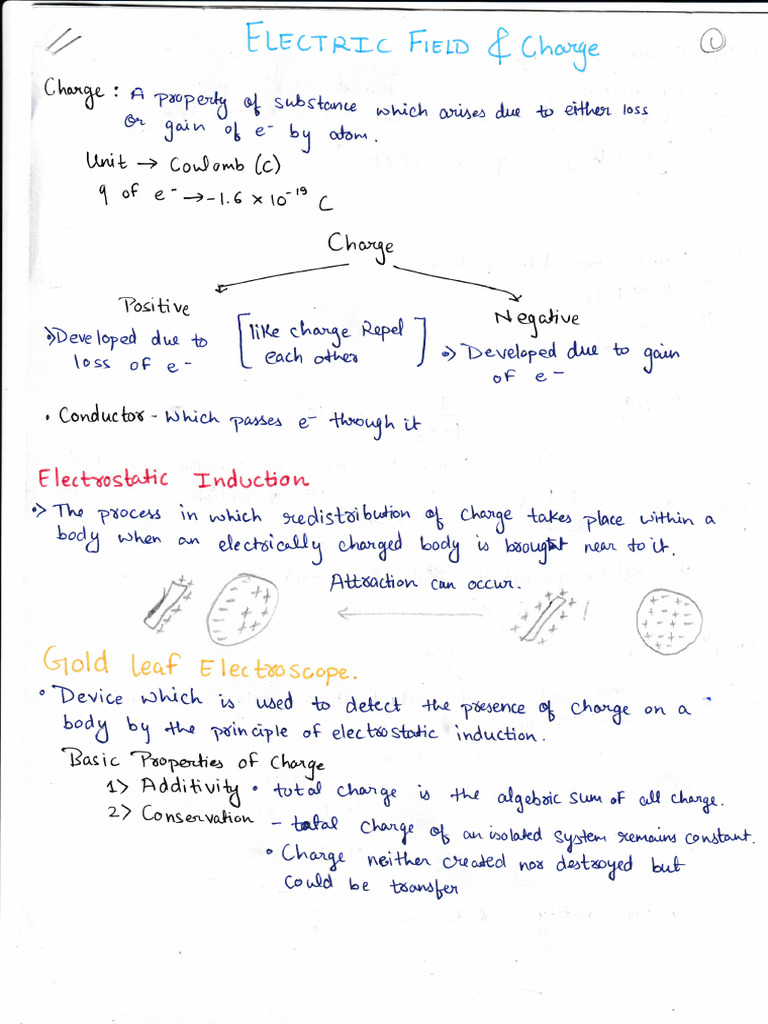 ELECTRIC FIELD & Charge
1
Charge : A property of substance which arises due to either loss
or gain of e⁻ by atom.
Unit → Coulomb (C)
q of e⁻ → -1.6 × 10⁻¹⁹ C
Charge
Positive
Negative
Developed due to
loss of e⁻
[like charge Repel
each other]
Developed due to gain
of e⁻
• Conductor - Which passes e⁻ through it
Electrostatic Induction
The process in which redistribution of charge takes place within a
body when an electrically charged body is brought near to it.
Attraction can occur.
Gold Leaf Electroscope.
• Device which is used to detect the presence of charge on a
body by the principle of electrostatic induction.
Basic Properties of Charge
1> Additivity • total charge is the algebric sum of all charge.
2> Conservation - total charge of an isolated system remains constant.
• Charge neither created nor destroyed but
could be transfer